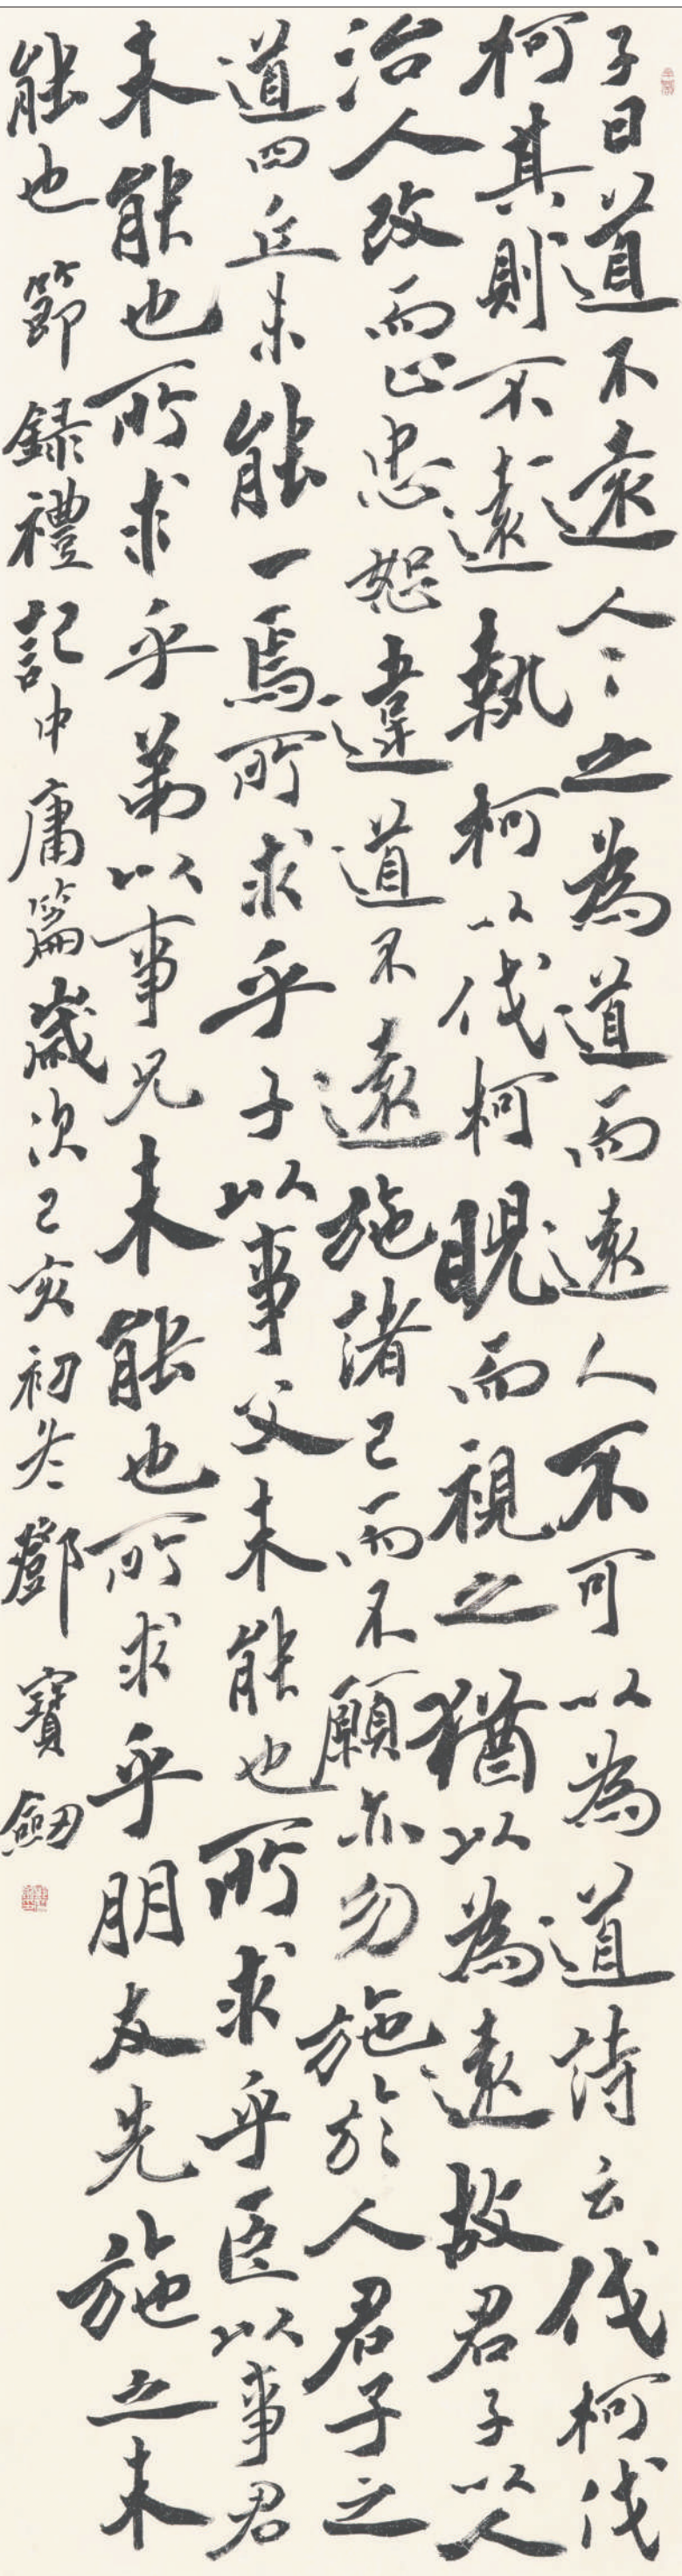 子曰道不遠人人之為道而遠人不可以為道詩云伐柯伐
柯其則不遠執柯以伐柯睨而視之猶以為遠故君子以人
治人改而止忠恕違道不遠施諸己而不願亦勿施於人君子之
道四丘未能一焉所求乎子以事父未能也所求乎臣以事君
未能也所求乎弟以事兄未能也所求乎朋友先施之未
能也節錄禮記中庸篇歲次己亥初冬鄧寶劒